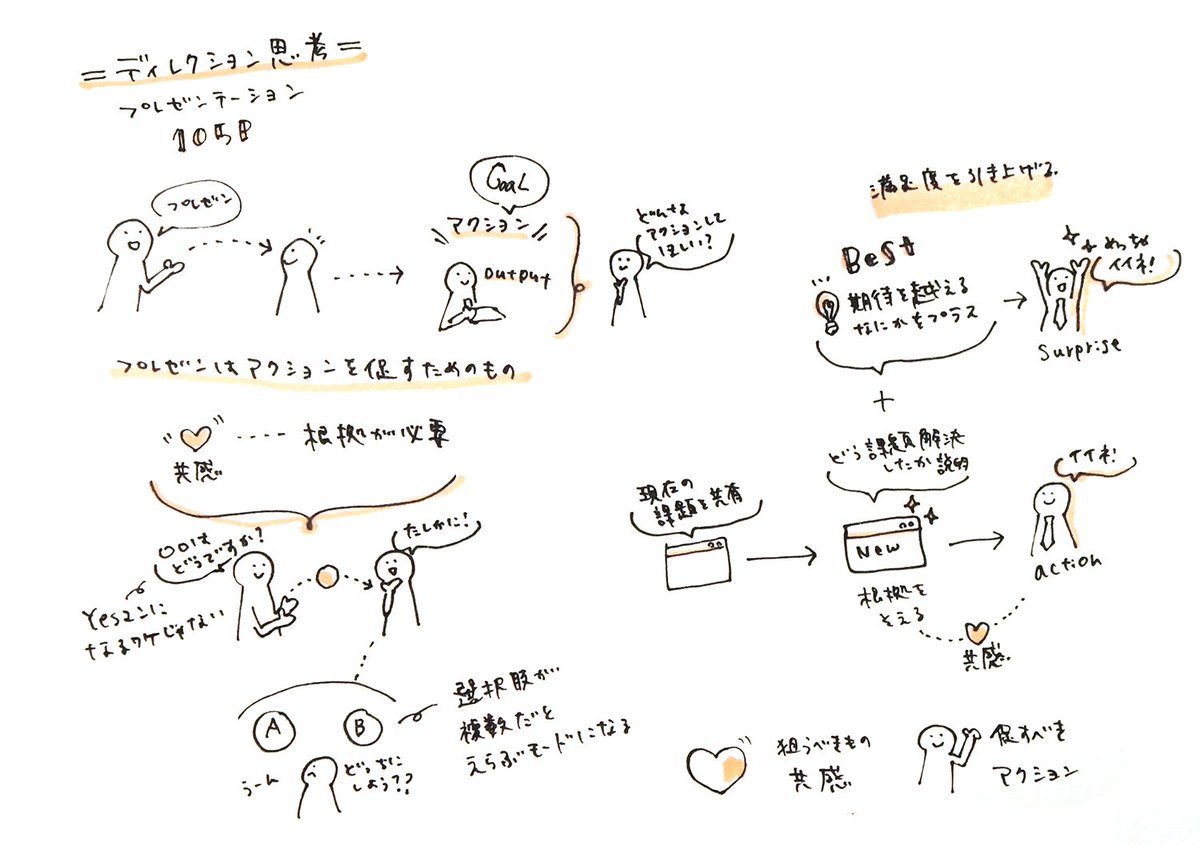 =ディレクション思考=
プレゼンテーション
105P
プレゼン
GOAL
アクション
output
どんな
アクションして
ほしい?
プレゼンはアクションを促すためのもの
共感
根拠が必要
〇〇は
どうですか?
たしかに!
Yesマンに
なるワケじゃない
A
B
選択肢が
複数だと
えらぶモードになる
うーん
どっちに
しよう??
満足度を引き上げる.
Best
期待を越える
なにかをプラス
めっちゃ
イイネ!
surprise
+
現在の
課題を共有
どう課題解決
したか説明
New
根拠を
そえる
イイネ!
action
共感
狙うべきもの
共感
促すべき
アクション